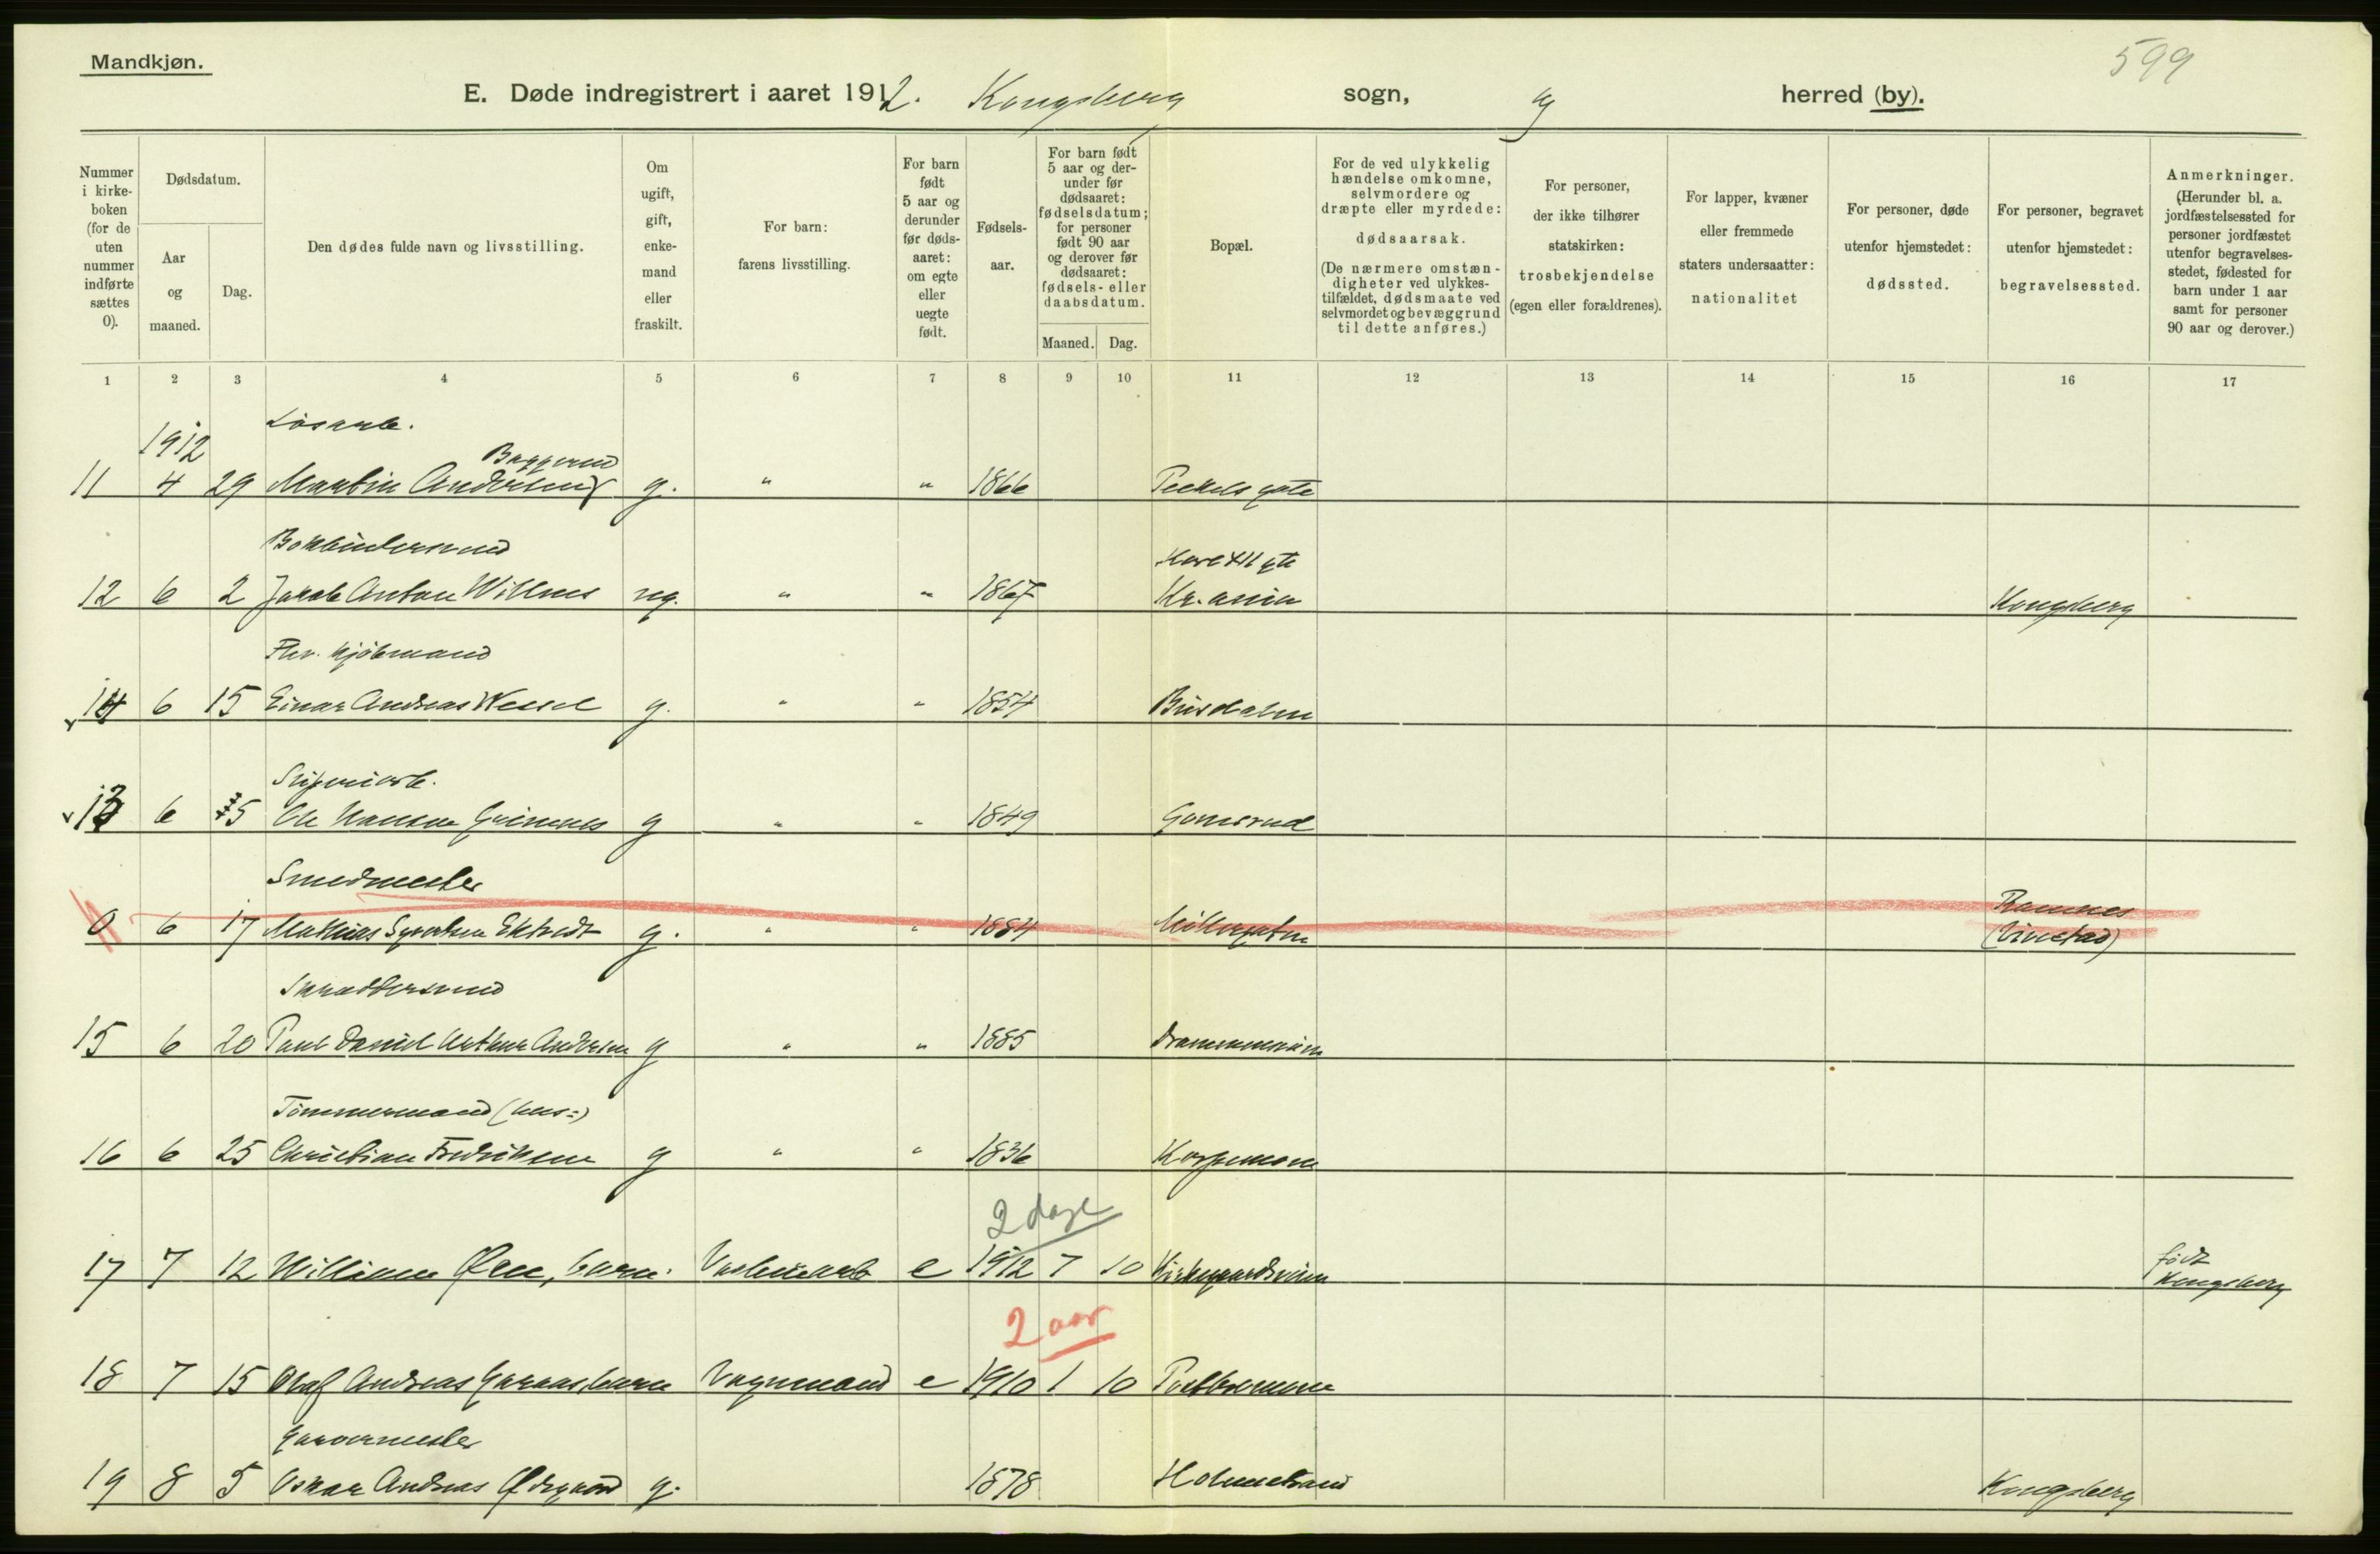 Mandkjøn.
599
E. Døde indregistrert i aaret 1912. Kongsberg sogn, herred (by).
Nummer i kirke-boken (for de uten nummer indførte sættes 0).
Dødsdatum.
Aar og maaned.
Dag.
Den dødes fulde navn og livsstilling.
Om ugift, gift, enke-mand eller fraskilt.
For barn: farens livsstilling.
For barn født 5 aar og derunder før døds-aaret: om egte eller uegte født.
Fødsels-aar.
For barn født 5 aar og der-under før dødsaaret: fødselsdatum; for personer født 90 aar og derover før dødsaaret: fødsels- eller daabsdatum.
Maaned.
Dag.
Bopæl.
For de ved ulykkelig hændelse omkomne, selvmordere og dræpte eller myrdede: dødsaarsak.
(De nærmere omstæn-digheter ved ulykkes-tilfældet, dødsmaate ved selvmordet og bevæggrund til dette anføres.)
For personer, der ikke tilhører statskirken: trosbekjendelse (egen eller forældrenes).
For lapper, kvæner eller fremmede staters undersaatter: nationalitet
For personer, døde utenfor hjemstedet: dødssted.
For personer, begravet utenfor hjemstedet: begravelsessted.
Anmerkninger. (Herunder bl. a. jordfæstelsessted for personer jordfæstet utenfor begravelses-stedet, fødested for barn under 1 aar samt for personer 90 aar og derover.)
1 2 3 4 5 6 7 8 9 10 11 12 13 14 15 16 17
Løsarb.
1912
Baggerud
11 4 29 Martin Andersen g. " " 1866 Peckels gate
Bokbindersvend
Karl XII gt
12 6 2 Jakob Anton Willms ug. " " 1867 Kr.ania Kongsberg
Fhv. kjøbmand
14 6 15 Einar Andreas Wessel g. " " 1854
Sliperiarb.
13 6 5 Ole Hansen Grimenes g " " 1849 Gomsrud
Smedmester
Ramnes
0 6 17 Mathias Ekstedt g. " " 1884 Møllergaten (Vivestad)
Skræddersvend
15 6 20 Paul Daniel Arthur Andersen g " " 1885 Drammensveien
Tømmermand (hus=)
16 6 25 Christian Fredriksen g " " 1836
2 dage
født
17 7 12 William Øen, barn. e 1912 7 10 Kirkegaardsveien Kongsberg
2 aar
18 7 15 Olaf Andreas barn Vognmand e 1910 1 10
Garvermester
19 8 5 Oskar Andreas Ødegaard g. 1878 Holmestrand Kongsberg